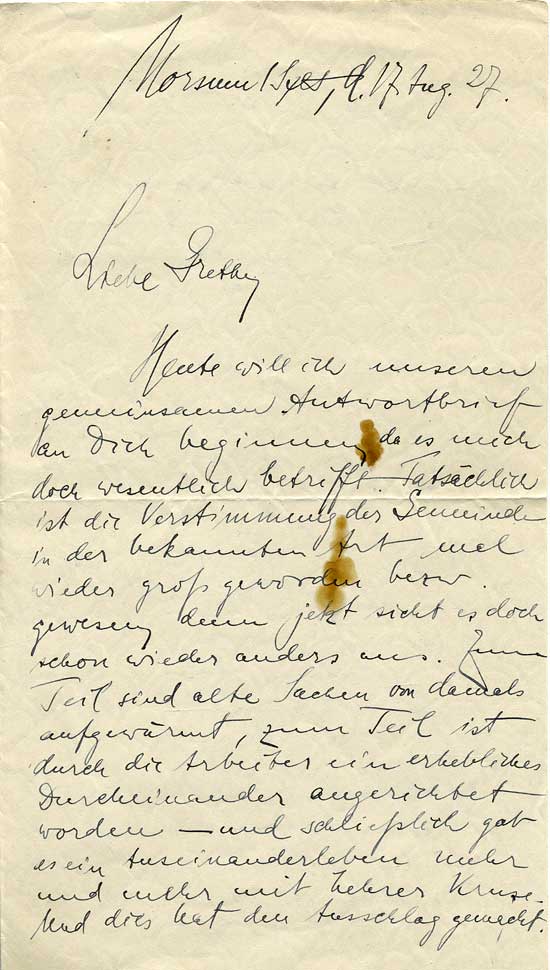 Morsum / Sylt, d. 17. Aug. 27.
Liebe Grethe,
Heute will ich unseren
gemeinsamen Antwortbrief
an Dich beginnen, da es mich
doch wesentlich betrifft. Tatsächlich
ist die Verstimmung der Gemeinde
in der bekannten Art mal
wieder groß geworden bezw.
gewesen, denn jetzt sieht es doch
schon wieder anders aus. Zum
Teil sind alte Sachen von damals
aufgewärmt, zum Teil ist
durch die Arbeiter ein erhebliches
Durcheinander angerichtet
worden – und schließlich gab
es ein Auseinanderleben mehr
und mehr mit Lehrer Kruse.
Und dies hat den Ausschlag gemacht.